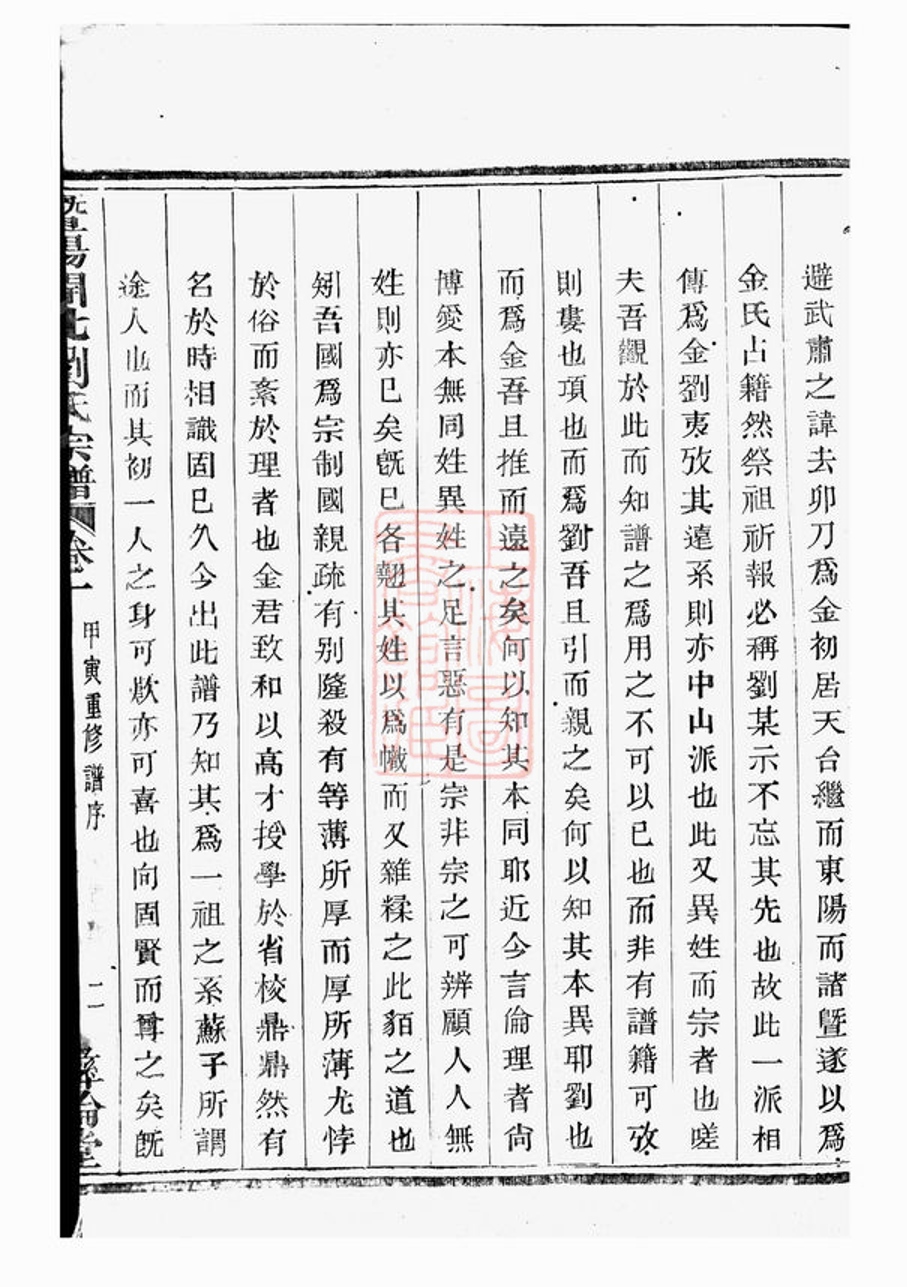 避武肅之諱去卯刀爲金初居天台繼而東陽而諸暨遂以爲
金氏占籍然祭祖祈報必稱劉某示不忘其先也故此一派相
傳爲金劉夷攷其遠系則亦中山派也此又異姓而宗者也嗟
夫吾觀於此而知譜之爲用之不可以已也而非有譜籍可攷
則婁也項也而爲劉吾且引而親之矣何以知其本異耶劉也
而爲金吾且推而遠之矣何以知其本同耶近今言倫理者尙
博愛本無同姓異姓之足言惡有是宗非宗之可辨顧人人無
姓則亦已矣旣已各翹其姓以爲幟而又雜糅之此貊之道也
矧吾國爲宗制國親疏有别隆殺有等薄所厚而厚所薄尤悖
於俗而紊於理者也金君致和以高才授學於省校鼎鼎然有
名於時相識固已久今出此譜乃知其爲一祖之系蘇子所謂
途人也而其初一人之身可歎亦可喜也向固賢而尊之矣旣
暨陽開化劉氏宗譜 卷一 甲寅重修譜序 二 彝倫堂